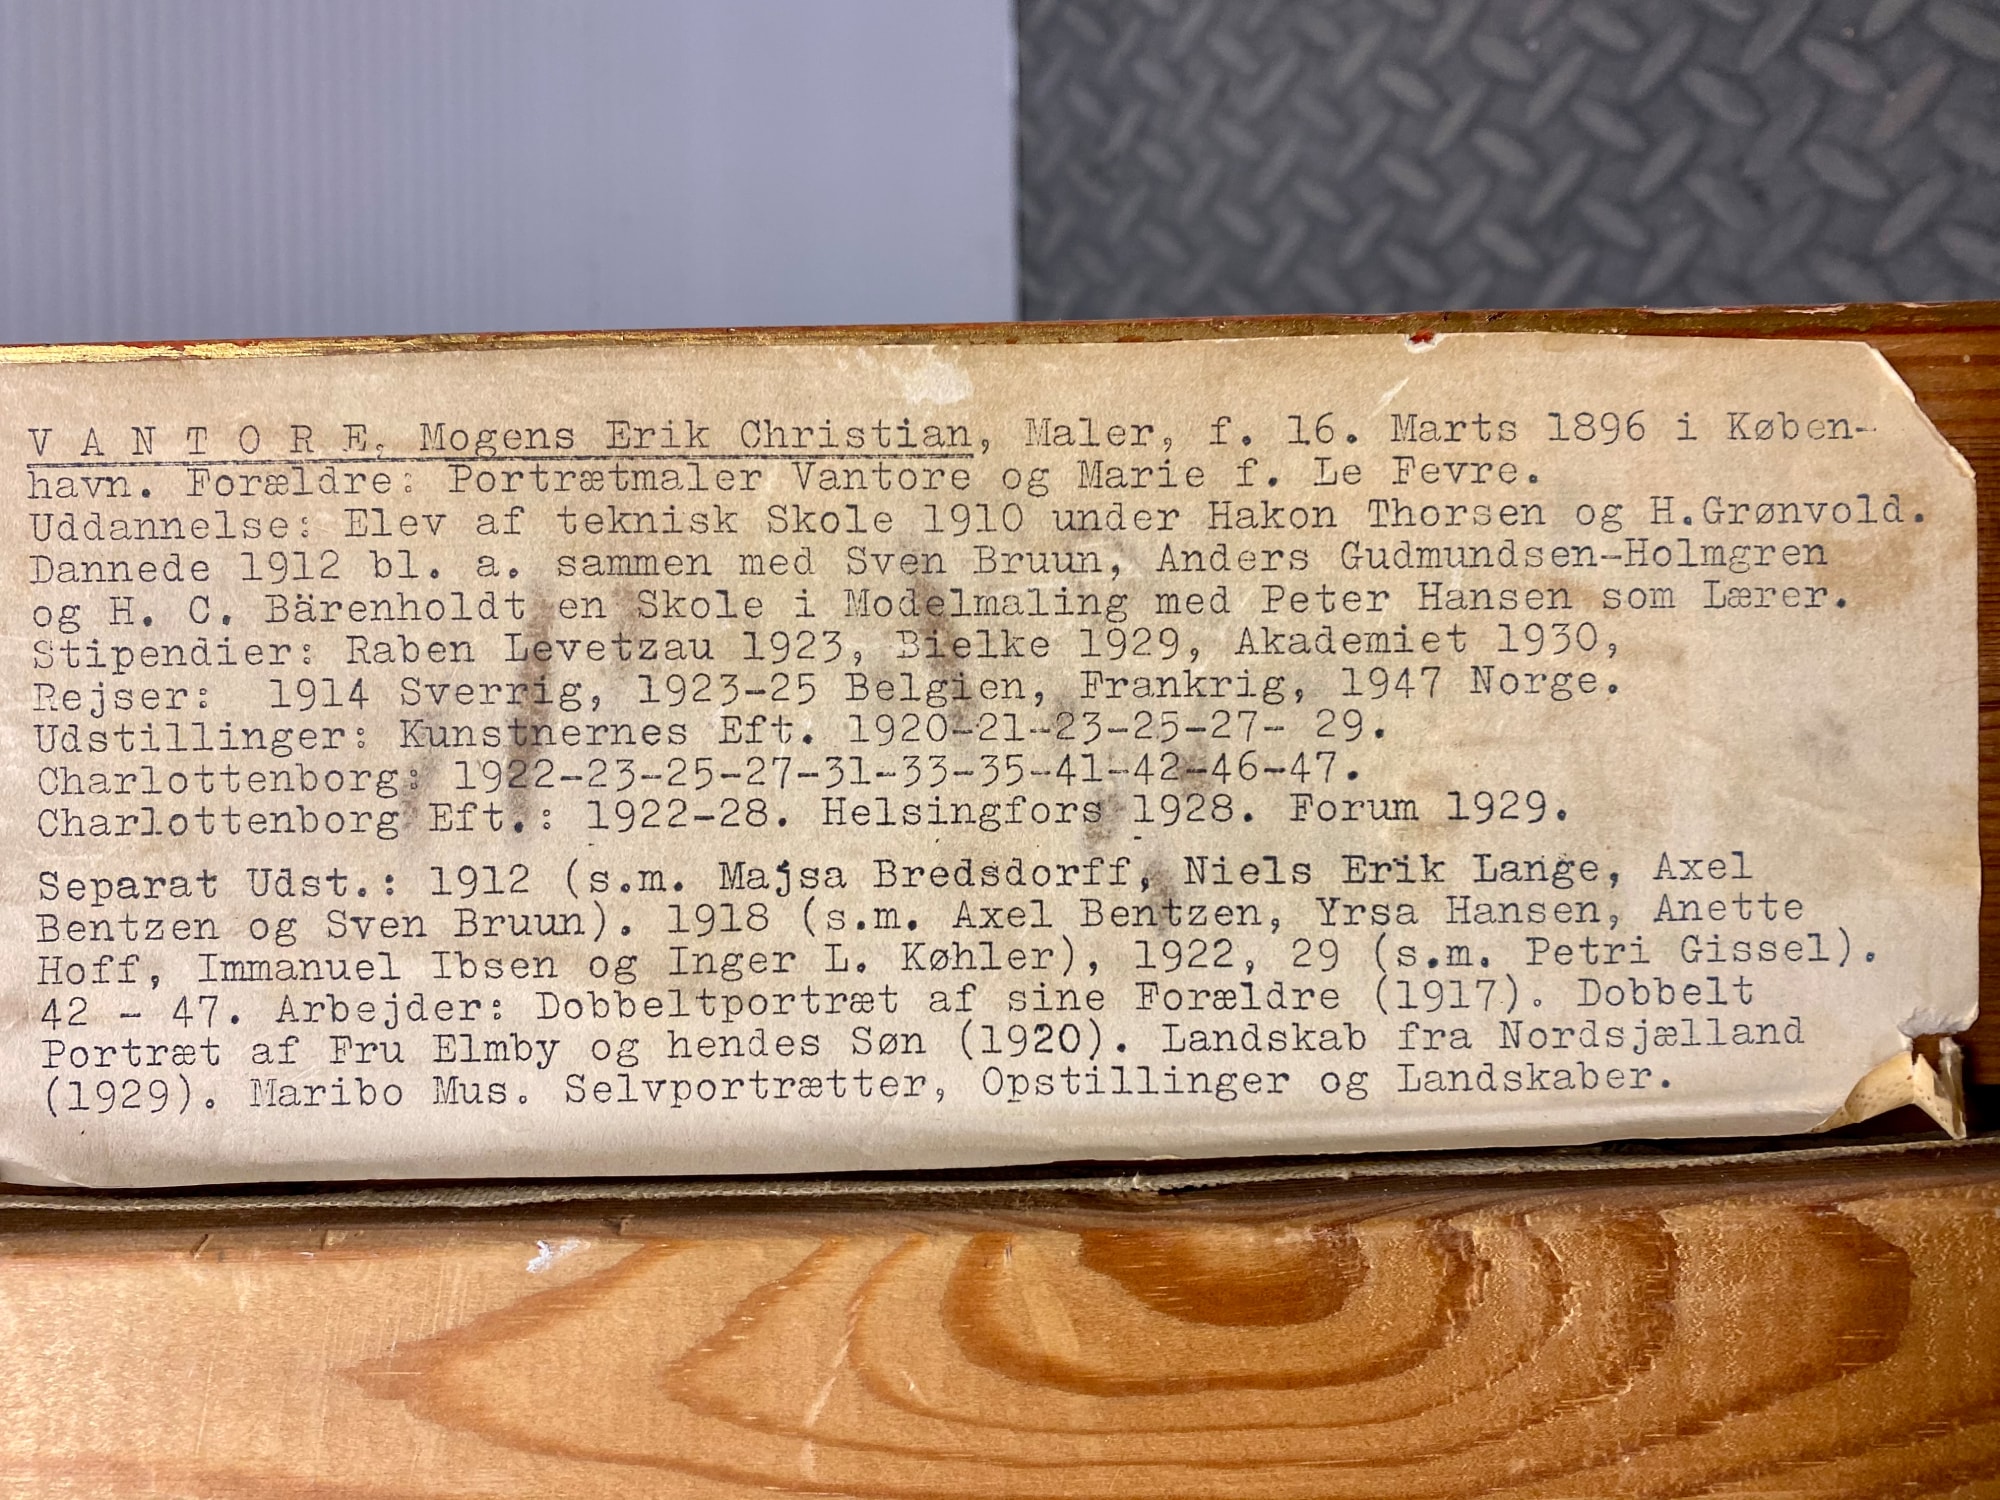 V A N T O R E, Mogens Erik Christian, Maler, f. 16. Marts 1896 i Køben-
havn. Forældre: Portrætmaler Vantore og Marie f. Le Fevre.
Uddannelse: Elev af teknisk Skole 1910 under Hakon Thorsen og H.Grønvold.
Dannede 1912 bl. a. sammen med Sven Bruun, Anders Gudmundsen-Holmgren
og H. C. Bärenholdt en Skole i Modelmaling med Peter Hansen som Lærer.
Stipendier: Raben Levetzau 1923, Bielke 1929, Akademiet 1930,
Rejser:  1914 Sverrig, 1923-25 Belgien, Frankrig, 1947 Norge.
Udstillinger: Kunstnernes Eft. 1920-21-23-25-27- 29.
Charlottenborg: 1922-23-25-27-31-33-35-41-42-46-47.
Charlottenborg Eft.: 1922-28. Helsingfors 1928. Forum 1929.
Separat Udst.: 1912 (s.m. Majsa Bredsdorff, Niels Erik Lange, Axel
Bentzen og Sven Bruun). 1918 (s.m. Axel Bentzen, Yrsa Hansen, Anette
Hoff, Immanuel Ibsen og Inger L. Køhler), 1922, 29 (s.m. Petri Gissel).
42 - 47. Arbejder: Dobbeltportræt af sine Forældre (1917). Dobbelt
Portræt af Fru Elmby og hendes Søn (1920). Landskab fra Nordsjælland
(1929). Maribo Mus. Selvportrætter, Opstillinger og Landskaber.